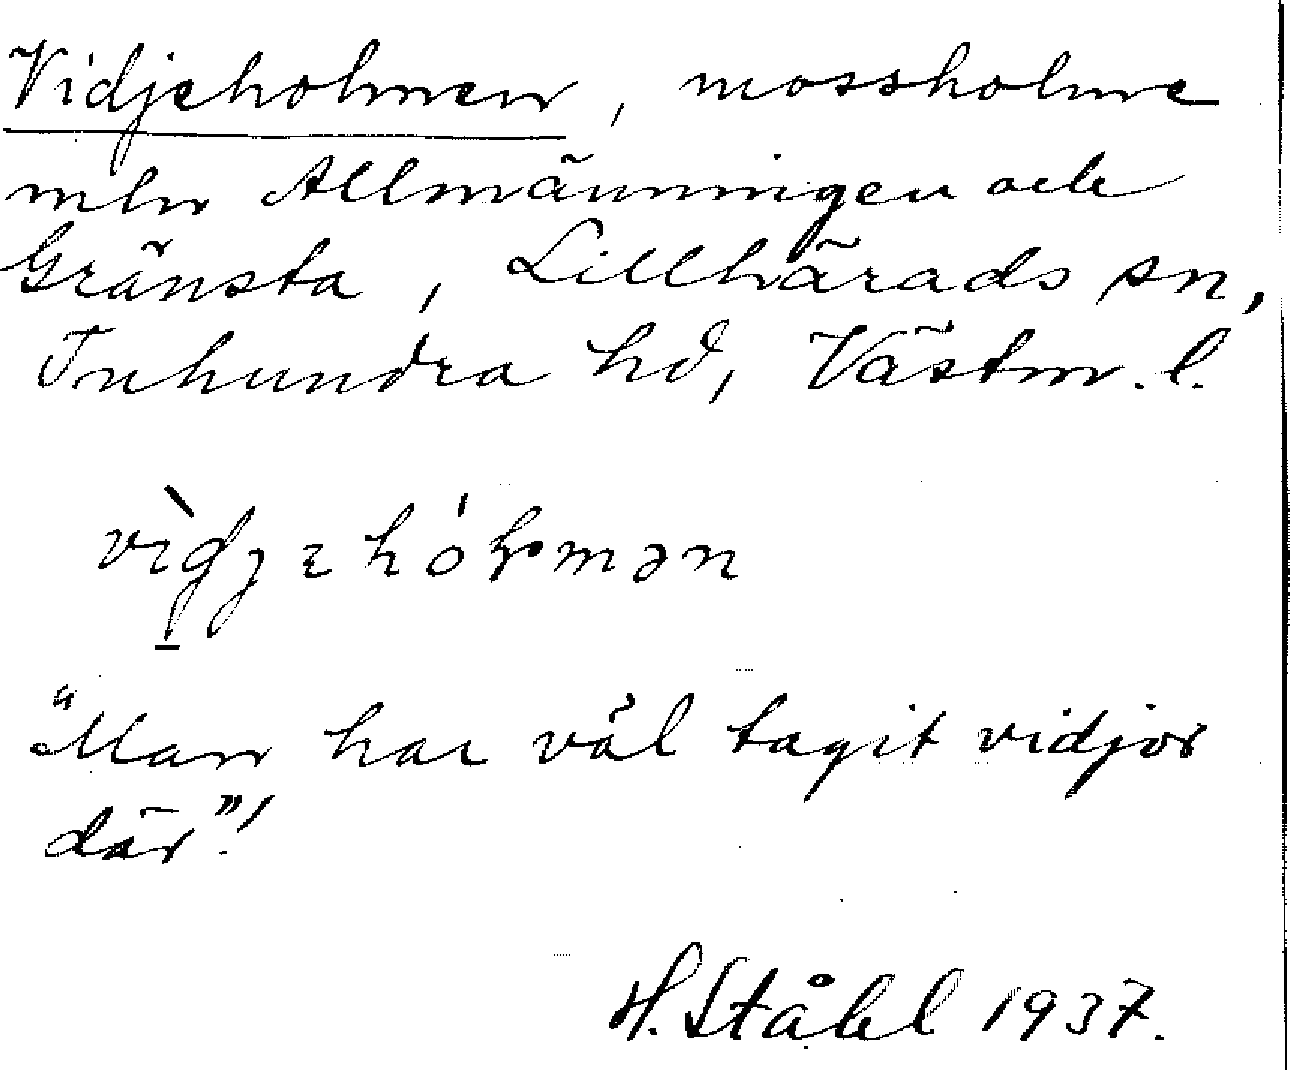 Vidjeholmen, mossholme
mln Allmänningen och
Gränsta, Lillhärads sn,
Tuhundra hd, Västm. l.
"Man har väl tagit vidjor
där"!
H. Ståhl 1937.